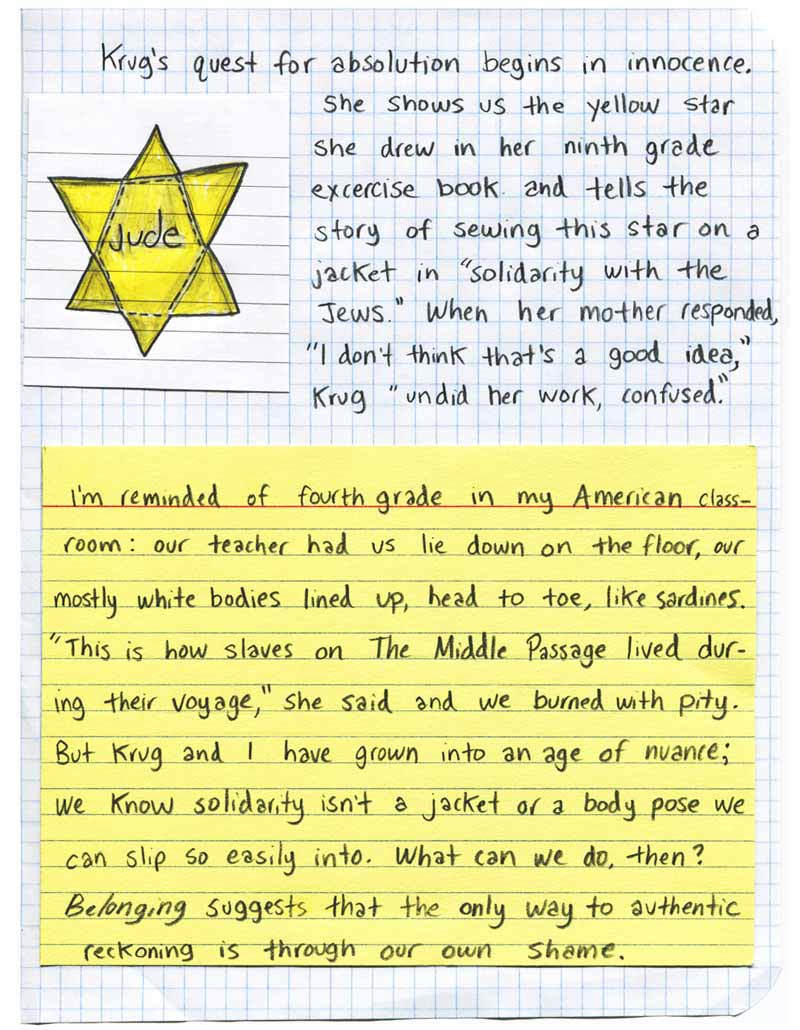 Krug's quest for absolution begins in innocence.
She shows us the yellow star
she drew in her ninth grade
excercise book and tells the
story of sewing this star on a
jacket in "solidarity with the
Jews." When her mother responded,
"I don't think that's a good idea,"
Krug "undid her work, confused."
Jude
I'm reminded of fourth grade in my American class-
room: our teacher had us lie down on the floor, our
mostly white bodies lined up, head to toe, like sardines.
"This is how slaves on The Middle Passage lived dur-
ing their voyage," she said and we burned with pity.
But Krug and I have grown into an age of nuance;
we know solidarity isn't a jacket or a body pose we
can slip so easily into. What can we do, then?
Belonging suggests that the only way to authentic
reckoning is through our own shame.